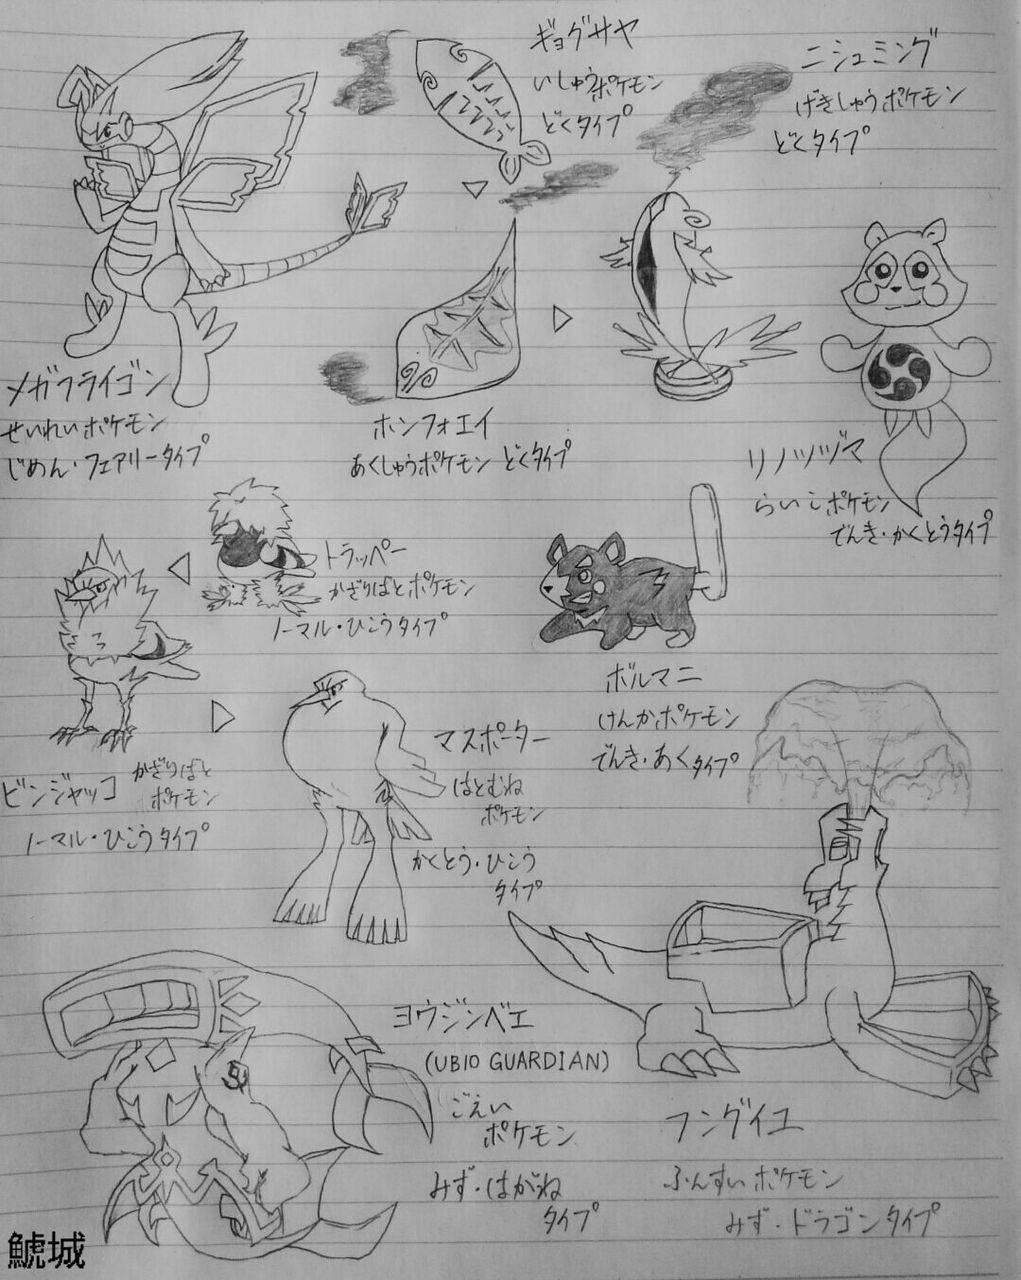 ギョグサヤ
いしゅうポケモン
どくタイプ
ニシュミング
げきしゅうポケモン
どくタイプ
メガフライゴン
せいれいポケモン
じめん・フェアリータイプ
ホンフォエイ
あくしゅうポケモン どくタイプ
リノツヅマ
らいこポケモン
でんき・かくとうタイプ
トラッペー
かざりばとポケモン
ノーマル・ひこうタイプ
ビンジャッコ
かざりばと
ポケモン
ノーマル・ひこうタイプ
マスポーター
はとむね
ポケモン
かくとう・ひこう
タイプ
ボルマニ
けんかポケモン
でんき・あくタイプ
ヨウジンベエ
(UBIO GUARDIAN)
ごえい
ポケモン
みず・はがね
タイプ
フングイユ
ふんすいポケモン
みず・ドラゴンタイプ
鯱城